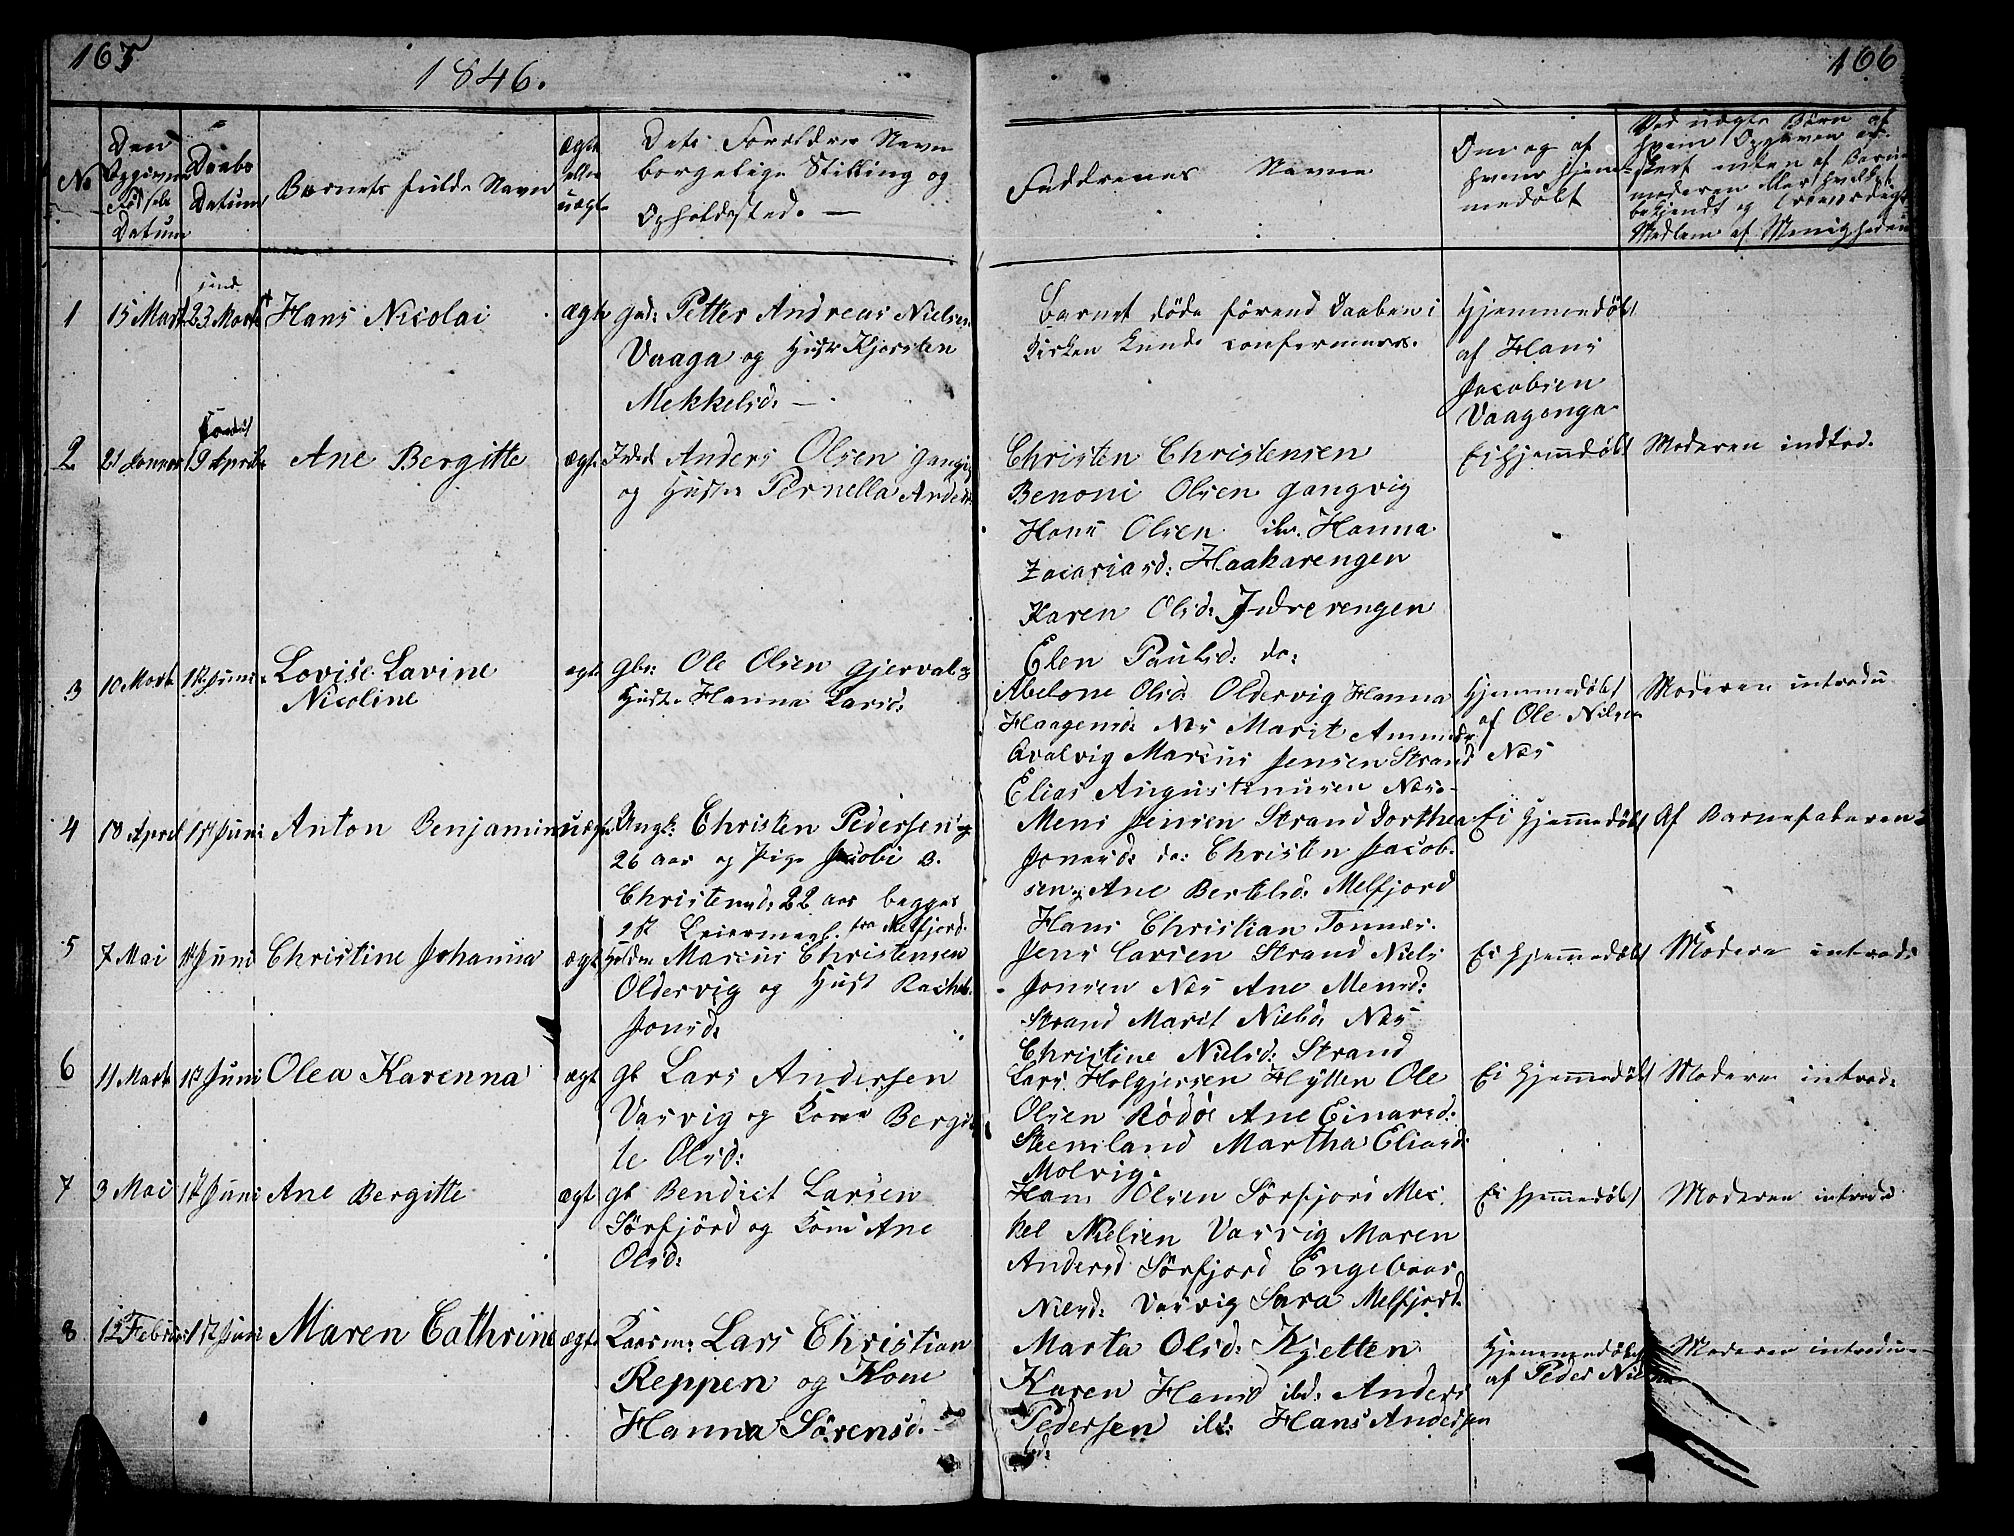 165
1846.
166
No
Den Opgivne Fødsels Datum
Daabs Datum
Barnets fulde Navn
Ægte eller uægte
Dets Forældres Navn borgelige Stilling og Opholdssted. —
Faddrenes Navne
Om og af hvem hjemmedøbt
Ved uægte Børn af hvem Opgaven er skeet enten af Barnemoderen eller hvilket bekjendt og troværdigt Medlem af Menigheden
1 15 Marts 23 Marts Hans Nicolai ægte gdb: Petter Andreas Nielsen
Vaaga og Hustr Kjersten
Mekkelsd: —
Barnet døde førend Daaben i
Kirken kunde confermeres.
Hjemmedøbt
af Hans
Jacobsen
Vaagenga
2 21 Januar 19 April Ane Bergitte ægte Inds: Anders Olsen gangvig
og Hustr Pernella Anders
Christen Christensen
Benoni Olsen gangvig
Hans Olsen ibd. Hanna
Zacariasd: Haakarengen
Karen Olsd: Indrerengen
Elen Paulsd: do:
Ei hjemdøbt Moderen indtrd.
3 10 Marts 1ste Juni Lovise Lavine
Nicoline
ægte gbr: Ole Olsen Gjerval og
Hustr Hanna Larsd:
Abelone Olsd: Oldervig Hanna
Haagensd: Næs Marit Ammundsd
Qvalvig Marcus Jensen Strand
Elias Augustinussen Næs
Hjemmedøbt
af Ole Nilsen
Næs
Moderen introdu
4 18 April 1ste Juni Anton Benjamin uægte Ungk: Christen Pedersen
26 aar og Pige Jacobi B.
Christensd: 22 aar begges
1st Leiermaal. fra Melfjord.
Mens Jensen Strand Dorthea
Jonasd: do: Christen Jacob-
sen, Ane Bertelsd: Melfjord
Hans Christian Tonnæs.
Ei hjemmedøbt Af Barnefaderen
5 7 Mai 1ste Juni Christine Johanna ægte Marcus Christensen
Oldervig og Hust Rachel
Jonsd:
Jens Larsen Strand Niels
Jonsen Næs Ane Mensd:
Strand Marit Nielsd. Næs
Christine Nielsd: Strand
Ei hjemmedøbt Modere introd:
6 11 Marts 1ste Juni Olea Karenna ægt gb Lars Andersen
Varvig og Kone Bergit
te Olsd:
Lars Holgjersen Hytten Ole
Olsen Rødø Ane Einarsd:
Steensland Martha Eliasd:
Molvig.
Ei hjemmedøbt Moderen introd:
7 3 Mai 1ste Juni Ane Bergitte ægt gb Bendict Larsen
Sørfjord og Kone Ane
Olsd:
Hans Olsen Sørfjord Mec
kel Nielsen Varvig Maren
Andersd Sørfjord Engebor
Nielsd: Varvig Sara Melfjord.
Ei hjemmedøbt Moderen introdu
8 12 Februar 1ste Juni Maren Cathrine ægte Lars Christian
Reppen og Kone
Hanna Sørensd.
Marta Olsd: Kjetten
Karen Hansd ibd: Anders
Pedersen ibd: Hans Andersen
ibd:
Hjemmedøbt
af Peder Nielsen
Moderen introdu